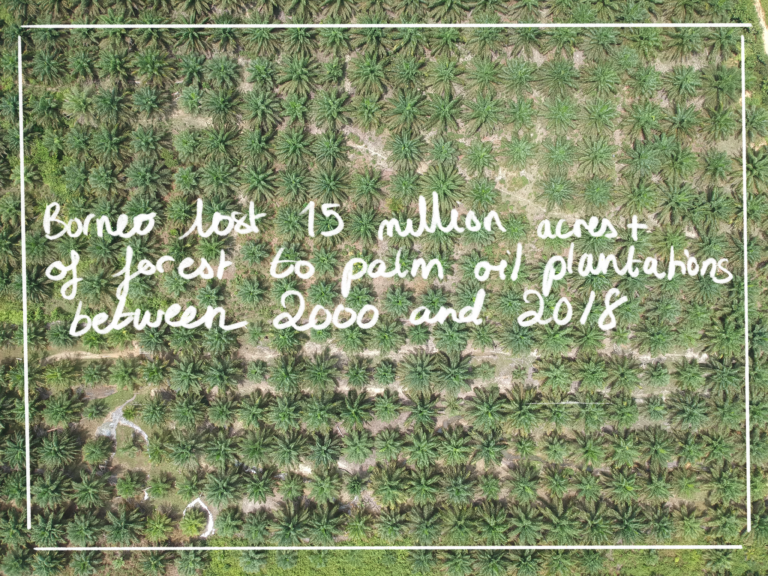 Borneo lost 15 million acres+
of forest to palm oil plantations
between 2000 and 2018